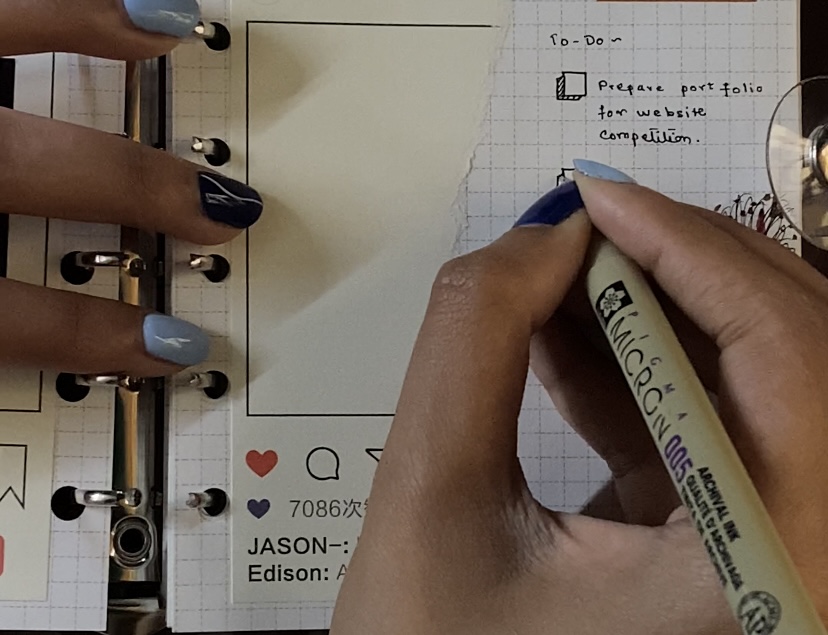 To-Do ~
Prepare portfolio
for website
competition.
7086次
JASON-:
Edison: A
PIGMA
MICRON 005
ARCHIVAL INK
QUALITÉ D'ARCHIVAGE
AP